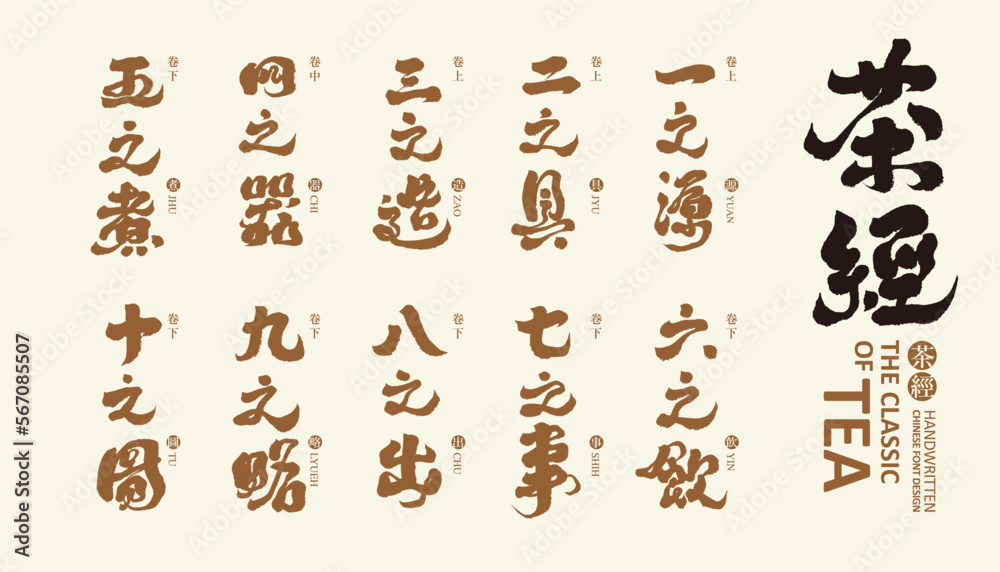 茶經
茶經
THE CLASSIC
OF TEA
HANDWRITTEN
CHINESE FONT DESIGN
一之源
卷上
源 YUAN
二之具
卷上
具 JYU
三之造
卷上
造 ZAO
四之器
卷中
器 CHI
五之煮
卷下
煮 JHU
六之飲
卷下
飲 YIN
七之事
卷下
事 SHIH
八之出
卷下
出 CHU
九之略
卷下
略 LYUEH
十之圖
卷下
圖 TU
Adobe Stock | #567085507
Adobe Stock